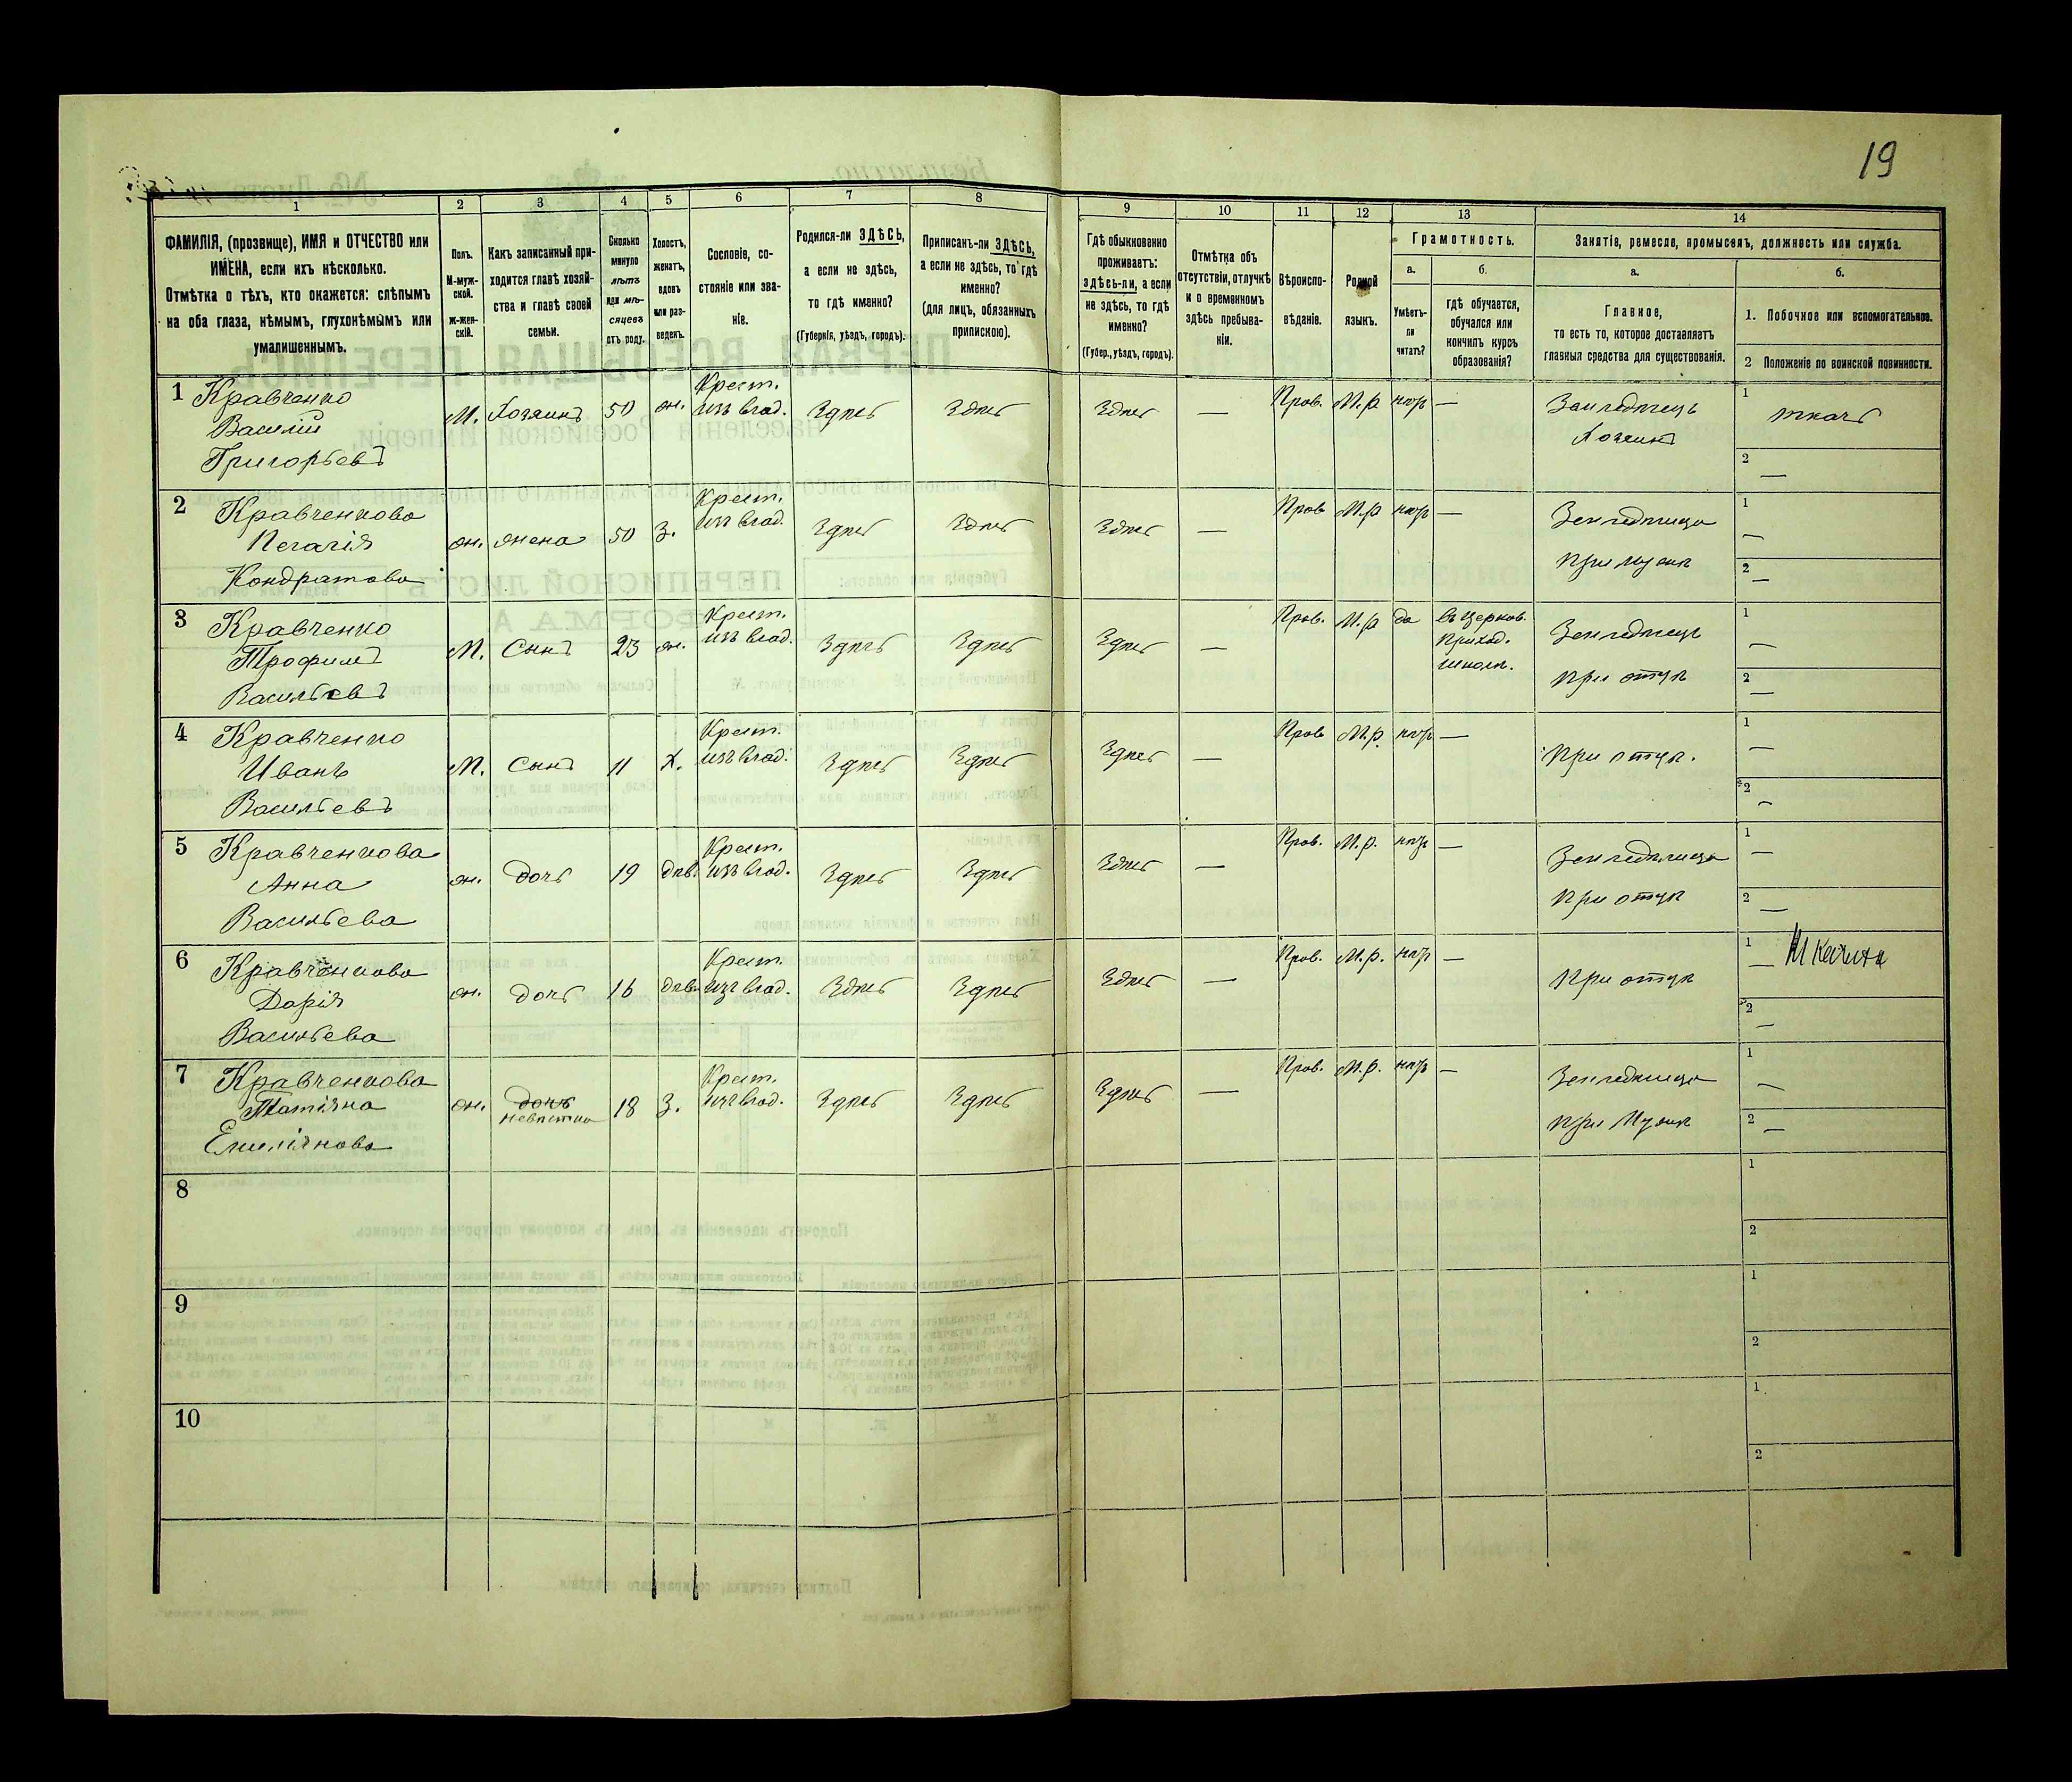 19
1
2
3
4
5
6
7
8
9
10
11
12
13
14
ФАМИЛІЯ, (прозвище), ИМЯ и ОТЧЕСТВО или
ИМЕНА, если ихъ нѣсколько.
Отмѣтка о тѣхъ, кто окажется: слѣпымъ
на оба глаза, нѣмымъ, глухонѣмымъ или
умалишеннымъ.
Полъ.
М-муж-
ской.
ж-жен-
скій.
Какъ записанный при-
ходится главѣ хозяй-
ства и главѣ своей
семьи.
Сколько
минуло
лѣтъ
или мѣ-
сяцевъ
отъ роду.
Холостъ,
женатъ,
вдовъ
или раз-
веденъ.
Сословіе, со-
стояніе или зва-
ніе.
Родился-ли ЗДѢСЬ,
а если не здѣсь,
то гдѣ именно?
(Губернія, уѣздъ, городъ).
Приписанъ-ли ЗДѢСЬ,
а если не здѣсь, то гдѣ
именно?
(для лицъ, обязанныхъ
припискою).
Гдѣ обыкновенно
проживаетъ:
здѣсь-ли, а если
не здѣсь, то гдѣ
именно?
(Губер., уѣздъ, городъ).
Отмѣтка объ
отсутствіи, отлучкѣ
и о временномъ
здѣсь пребыва-
ніи.
Вѣроиспо-
вѣданіе.
Родной
языкъ.
Грамотность.
а.
Умѣетъ-
ли
читать?
б.
гдѣ обучается,
обучался или
кончилъ курсъ
образованія?
Занятіе, ремесло, промыселъ, должность или служба.
а.
Главное,
то есть то, которое доставляетъ
главныя средства для существованія.
б.
1. Побочное или вспомогательное.
2 Положеніе по воинской повинности.
1 Кравченко
Василій
Григорьевъ
М. Хозяинъ 50 ж. Крест.
изъ влад. Здѣсь Здѣсь Здѣсь — Пров. М.р нѣтъ — Земледѣлецъ
Хозяинъ
1 ткачъ
2 —
2 Кравченкова
Пелагія
Кондратова
ж. жена 50 З. Крест.
изъ влад. Здѣсь Здѣсь Здѣсь — Пров М.р нѣтъ — Земледѣлица
при мужѣ
1 —
2 —
3 Кравченко
Трофимъ
Васильевъ
М. Сынъ 23 ж. Крест.
изъ влад. Здѣсь Здѣсь Здѣсь — Пров. М.р да въ церков.
приход.
школѣ. Земледѣлецъ
при отцѣ
1 —
2 —
4 Кравченко
Иванъ
Васильевъ
М. Сынъ 11 Х. Крест.
изъ влад. Здѣсь Здѣсь Здѣсь — Пров М.р. нѣтъ — при отцѣ.
1 —
2 —
5 Кравченкова
Анна
Васильева
ж. дочь 19 дѣв. Крест.
изъ влад. Здѣсь Здѣсь Здѣсь — Пров. М.р. нѣтъ — Земледѣлица
при отцѣ
1 —
2 —
6 Кравченкова
Дарія
Васильева
ж. дочь 16 дѣв. Крест.
изъ влад. Здѣсь Здѣсь Здѣсь — Пров. М.р. нѣтъ — при отцѣ
1 —
2 —
7 Кравченкова
Татіяна
Емиліянова
ж. дочь
невѣстка 18 З. Крест.
изъ влад. Здѣсь Здѣсь Здѣсь — Пров. М.р. нѣтъ — Земледѣлица
при Мужѣ
1 —
2 —
8
1
2
9
1
2
10
1
2